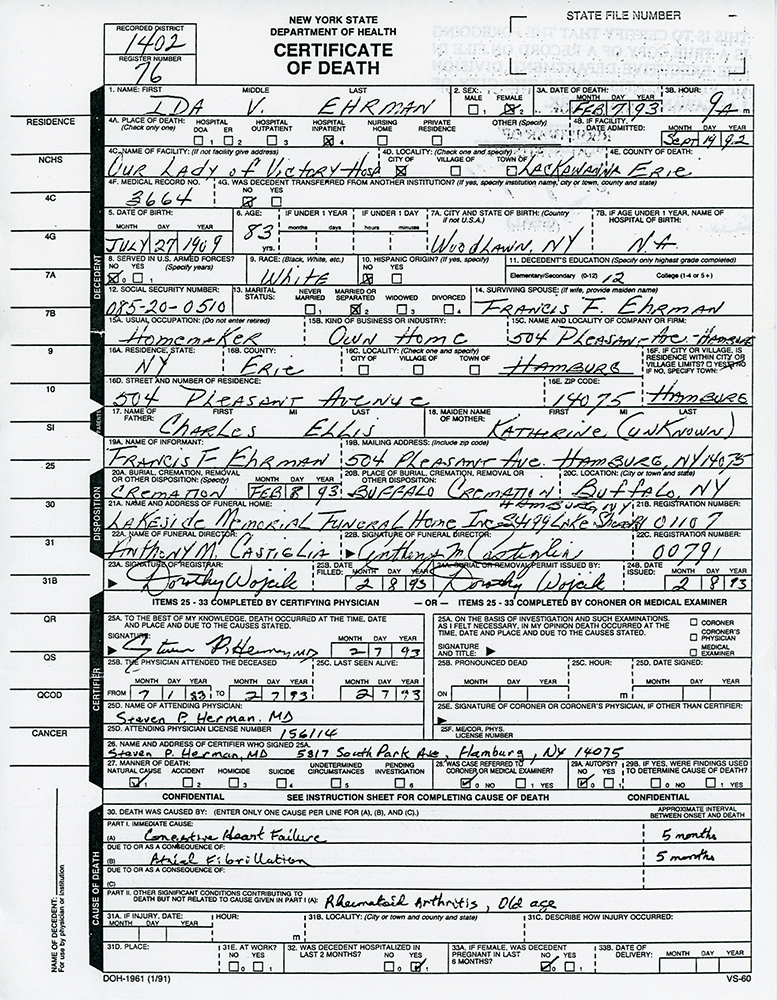 RECORDED DISTRICT
1402
REGISTER NUMBER
76
NEW YORK STATE
DEPARTMENT OF HEALTH
CERTIFICATE
OF DEATH
STATE FILE NUMBER
1. NAME: FIRST MIDDLE LAST
IDA V. EHRMAN
2. SEX: MALE FEMALE
1 2
3A. DATE OF DEATH: MONTH DAY YEAR
FEB 7 93
3B. HOUR:
9A m
RESIDENCE
4A. PLACE OF DEATH: (Check only one) HOSPITAL DOA ER HOSPITAL OUTPATIENT HOSPITAL INPATIENT NURSING HOME PRIVATE RESIDENCE OTHER (Specify)
4B. IF FACILITY, DATE ADMITTED: MONTH DAY YEAR
Sept 14 92
NCHS
4C. NAME OF FACILITY: (If not facility give address)
OUR LADY of VICTORY Hosp
4D. LOCALITY: (Check one and specify) CITY OF VILLAGE OF TOWN OF
LACKAWANNA
4E. COUNTY OF DEATH:
ERIE
4C
4F. MEDICAL RECORD NO.
3664
4G. WAS DECEDENT TRANSFERRED FROM ANOTHER INSTITUTION? (If yes, specify institution name, city or town, county and state)
NO YES
4G
5. DATE OF BIRTH: MONTH DAY YEAR
JULY 27 1909
6. AGE:
83 yrs.
IF UNDER 1 YEAR months days
IF UNDER 1 DAY hours minutes
7A. CITY AND STATE OF BIRTH: (Country if not U.S.A.)
WOODLAWN, NY
7B. IF AGE UNDER 1 YEAR, NAME OF HOSPITAL OF BIRTH:
NA
7A
DECEDENT
8. SERVED IN U.S. ARMED FORCES? NO YES (Specify years)
9. RACE: (Black, White, etc.)
White
10. HISPANIC ORIGIN? (If yes, specify) NO YES
11. DECEDENT'S EDUCATION (Specify only highest grade completed)
Elementary/Secondary (0-12) 12 College (1-4 or 5+)
7B
12. SOCIAL SECURITY NUMBER:
085-20-0510
13. MARITAL STATUS: NEVER MARRIED MARRIED OR SEPARATED WIDOWED DIVORCED
1 2 3 4
14. SURVIVING SPOUSE: (If wife, provide maiden name)
FRANCIS F. EHRMAN
15A. USUAL OCCUPATION: (Do not enter retired)
HOMEMAKER
15B. KIND OF BUSINESS OR INDUSTRY:
OWN HOME
15C. NAME AND LOCALITY OF COMPANY OR FIRM:
504 PLEASANT AVE. HAMBURG
9
16A. RESIDENCE, STATE:
NY
16B. COUNTY:
ERIE
16C. LOCALITY: (Check one and specify) CITY OF VILLAGE OF TOWN OF
HAMBURG
16F. IF CITY OR VILLAGE, IS RESIDENCE WITHIN CITY OR VILLAGE LIMITS? YES NO IF NO, SPECIFY TOWN:
HAMBURG
10
16D. STREET AND NUMBER OF RESIDENCE:
504 PLEASANT AVENUE
16E. ZIP CODE:
14075
SI
PARENTS
17. NAME OF FATHER: FIRST MI LAST
CHARLES ELLIS
18. MAIDEN NAME OF MOTHER: FIRST MI LAST
KATHRINE, (UNKNOWN)
25
19A. NAME OF INFORMANT:
FRANCIS F. EHRMAN
19B. MAILING ADDRESS: (Include zip code)
504 PLEASANT AVE. HAMBURG, NY 14075
DISPOSITION
20A. BURIAL, CREMATION, REMOVAL OR OTHER DISPOSITION: (Specify) MONTH DAY YEAR
CREMATION FEB 8 93
20B. PLACE OF BURIAL, CREMATION, REMOVAL OR OTHER DISPOSITION:
BUFFALO CREMATION
20C. LOCATION: (City or town and state)
BUFFALO, NY
30
21A. NAME AND ADDRESS OF FUNERAL HOME:
LAKESIDE MEMORIAL FUNERAL HOME Inc 34199 LAKE SHORE RD HAMBURG, NY
21B. REGISTRATION NUMBER:
01107
31
22A. NAME OF FUNERAL DIRECTOR:
ANTHONY M. CASTIGLIA
22B. SIGNATURE OF FUNERAL DIRECTOR:
Anthony M. Castiglia
22C. REGISTRATION NUMBER:
00791
31B
23A. SIGNATURE OF REGISTRAR:
Dorothy Wojcik
23B. DATE FILED: MONTH DAY YEAR
2 8 93
24A. BURIAL OR REMOVAL PERMIT ISSUED BY:
Dorothy Wojcik
24B. DATE ISSUED: MONTH DAY YEAR
2 8 93
ITEMS 25 - 33 COMPLETED BY CERTIFYING PHYSICIAN — OR — ITEMS 25 - 33 COMPLETED BY CORONER OR MEDICAL EXAMINER
QR
CERTIFIER
25A. TO THE BEST OF MY KNOWLEDGE, DEATH OCCURRED AT THE TIME, DATE AND PLACE AND DUE TO THE CAUSES STATED.
SIGNATURE: Steven P. Herman, MD
MONTH DAY YEAR
2 7 93
25A. ON THE BASIS OF INVESTIGATION AND SUCH EXAMINATIONS, AS I FELT NECESSARY, IN MY OPINION DEATH OCCURRED AT THE TIME, DATE AND PLACE AND DUE TO THE CAUSES STATED.
SIGNATURE AND TITLE:
CORONER
CORONER'S PHYSICIAN
MEDICAL EXAMINER
QS
25B. THE PHYSICIAN ATTENDED THE DECEASED
FROM 7 1 83 TO 2 7 93
25C. LAST SEEN ALIVE: MONTH DAY YEAR
2 7 93
25B. PRONOUNCED DEAD MONTH DAY YEAR
ON
25C. HOUR:
m
25D. DATE SIGNED: MONTH DAY YEAR
QCOD
25D. NAME OF ATTENDING PHYSICIAN:
Steven P. Herman. MD
25E. SIGNATURE OF CORONER OR CORONER'S PHYSICIAN, IF OTHER THAN CERTIFIER:
CANCER
25D. ATTENDING PHYSICIAN LICENSE NUMBER
156114
25F. ME/COR. PHYS. LICENSE NUMBER
26. NAME AND ADDRESS OF CERTIFIER WHO SIGNED 25A.
Steven P. Herman, MD 5317 South Park Ave, Hamburg, NY 14075
27. MANNER OF DEATH: NATURAL CAUSE ACCIDENT HOMICIDE SUICIDE UNDETERMINED CIRCUMSTANCES PENDING INVESTIGATION
1 2 3 4 5 6
28. WAS CASE REFERRED TO CORONER OR MEDICAL EXAMINER?
0 NO 1 YES
29A. AUTOPSY? NO YES
0 1
29B. IF YES, WERE FINDINGS USED TO DETERMINE CAUSE OF DEATH?
0 NO 1 YES
CONFIDENTIAL SEE INSTRUCTION SHEET FOR COMPLETING CAUSE OF DEATH CONFIDENTIAL
CAUSE OF DEATH
30. DEATH WAS CAUSED BY: (ENTER ONLY ONE CAUSE PER LINE FOR (A), (B), AND (C).)
APPROXIMATE INTERVAL BETWEEN ONSET AND DEATH
PART I. IMMEDIATE CAUSE:
(A) Congestive Heart Failure 5 months
DUE TO OR AS A CONSEQUENCE OF:
(B) Atrial Fibrillation 5 months
DUE TO OR AS A CONSEQUENCE OF:
(C)
PART II. OTHER SIGNIFICANT CONDITIONS CONTRIBUTING TO DEATH BUT NOT RELATED TO CAUSE GIVEN IN PART I (A):
Rheumatoid Arthritis, Old age
31A. IF INJURY, DATE: MONTH DAY YEAR
HOUR:
m
31B. LOCALITY: (City or town and county and state)
31C. DESCRIBE HOW INJURY OCCURRED:
31D. PLACE:
31E. AT WORK? NO YES
0 1
32. WAS DECEDENT HOSPITALIZED IN LAST 2 MONTHS? NO YES
0 1
33A. IF FEMALE, WAS DECEDENT PREGNANT IN LAST 6 MONTHS? NO YES
0 1
33B. DATE OF DELIVERY: MONTH DAY YEAR
NAME OF DECEDENT:
For use by physician or institution
DOH-1961 (1/91)
VS-60